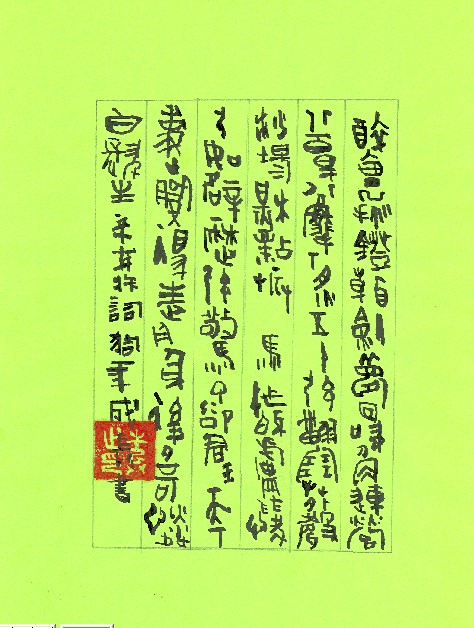 醉裡挑燈看劍夢回吹角連營
八百里分麾下炙五十弦翻塞外聲
沙場秋點兵 馬作的盧飛快
弓如霹靂弦驚了卻君王天下
事贏得生前身後名可憐
白髮生 辛棄疾詞狗年成 書